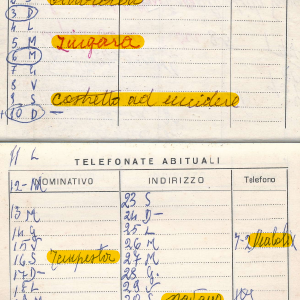 3 D
4 L
5 M Zingara
6 M
7 G
8 V
9 S costretto ad uccidere
10 D -
11 L TELEFONATE ABITUALI
12 - M NOMINATIVO INDIRIZZO Telefono
23 S
13 M 24 D -
14 G 25 L
15 V 26 M 7-2 Diabolix
16 S Tempesta 27 M
17 D - 28 G.
18 L 29 V